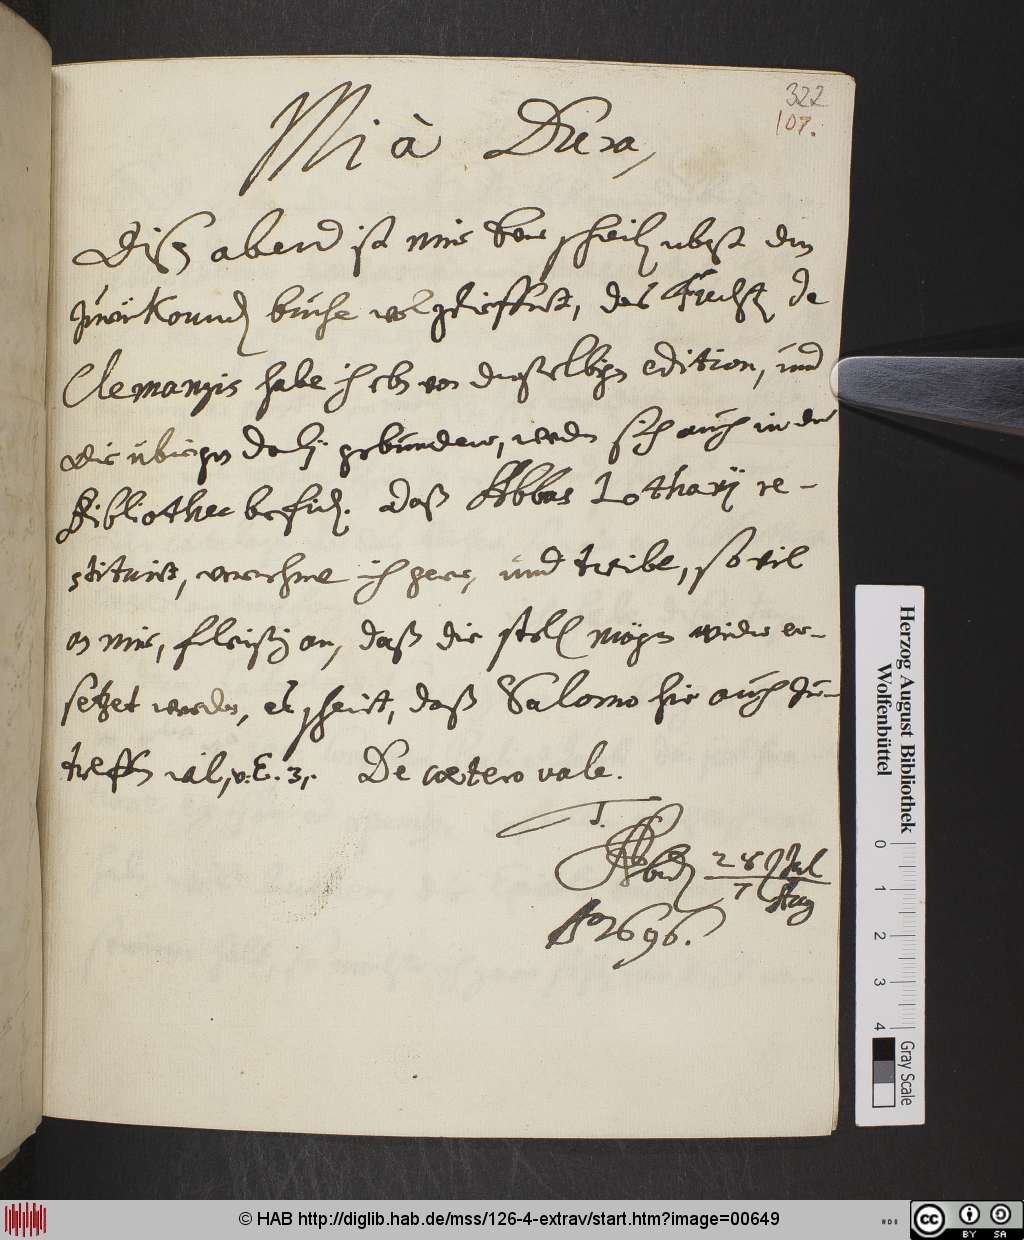 322
107.
Mi à Dura,
Diß abend ist mir dein schreib nebst den
zurükkomend büchern wol gelieffert, des Tracts de
Clemangis habe ich eb von derselbigen edition, und
die übrigen da gebunden, werden sich auch in der
Bibliothec befind. daß Abbas Lotharij re-
stituirt, vernehme ich gern, und treibe, so viel
an mir, fleißig an, daß die stell mögen wieder er-
setzet werden, es scheint, daß Salomo hie auch zu-
treffen wil, v: E. 3,. De cætero vale.
T.
28 Jul
7 Aug
Ao 1696.
Herzog August Bibliothek
Wolfenbüttel
0 1 2 3 4
Gray Scale
© HAB http://diglib.hab.de/mss/126-4-extrav/start.htm?image=00649
cc BY SA